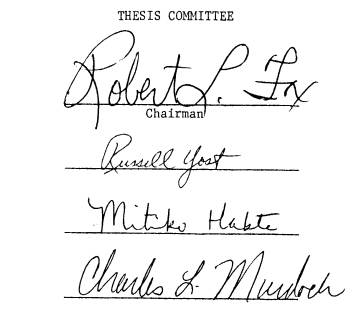 THESIS COMMITTEE
Robert L. Fox
Chairman
Russell Yost
Mitiku Habte
Charles L. Murdoch